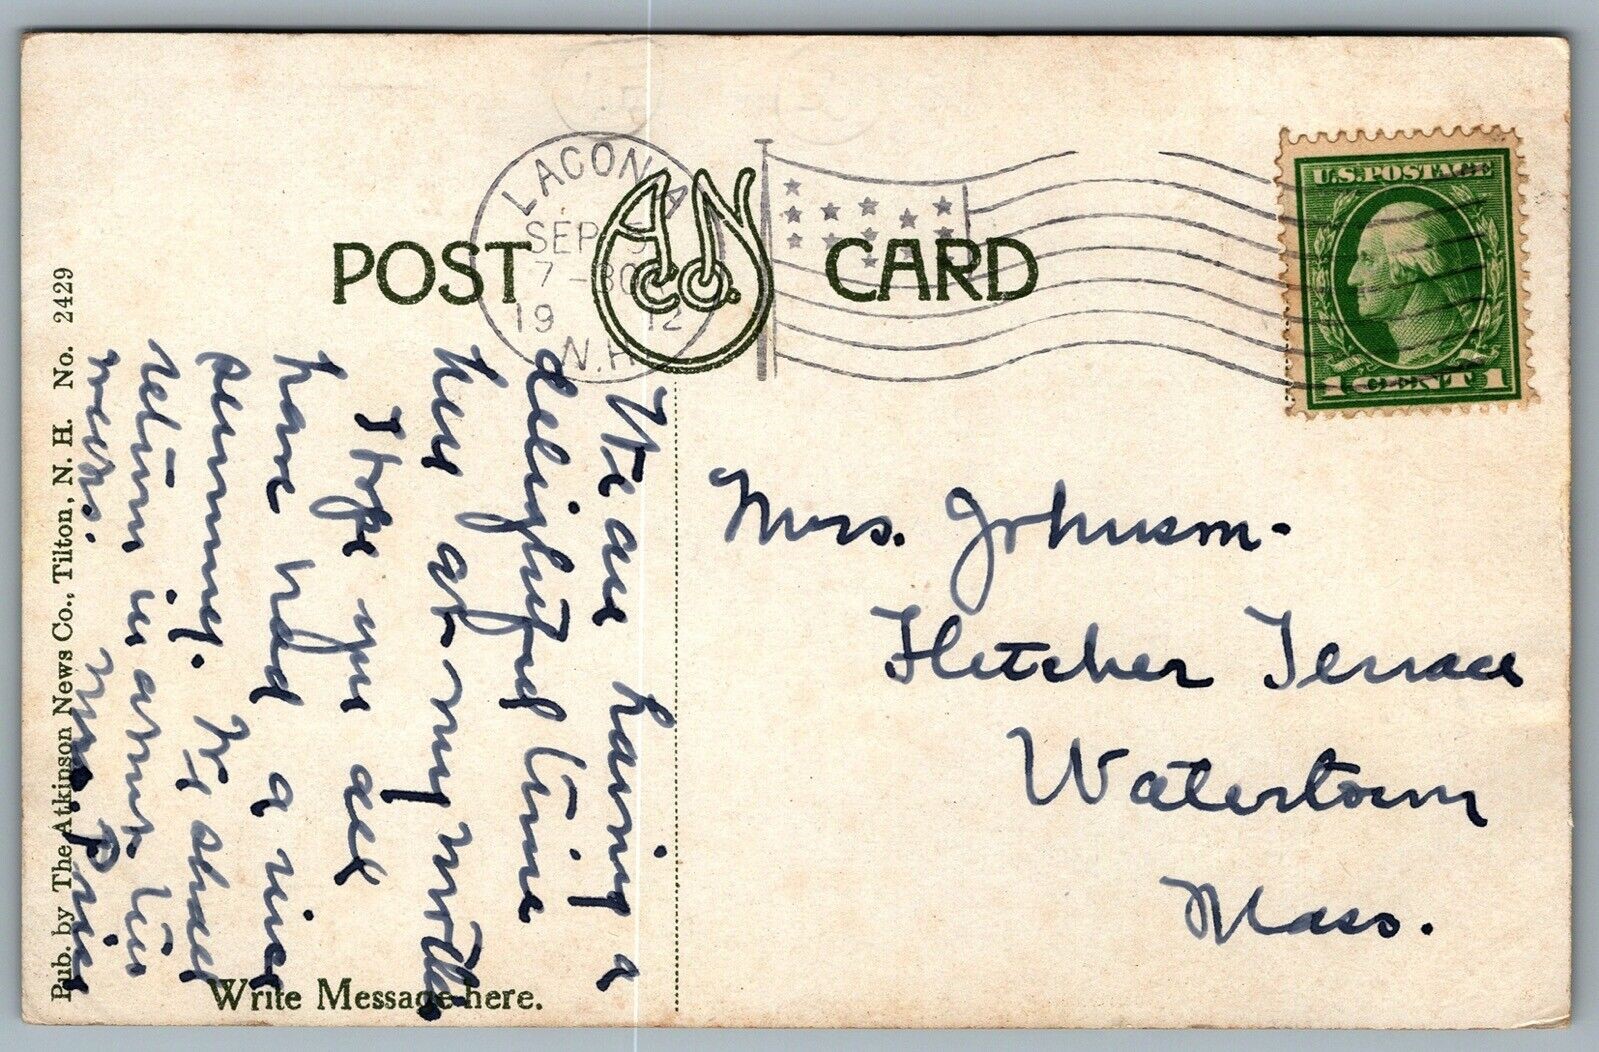 POST CARD
A N Co.
LACONIA
SEP 5
7-30
1912
N.H.
U.S. POSTAGE
1 CENT 1
Mrs. Johnson-
Fletcher Terrace
Watertown
Mass.
We are having a
delightful time
here at my mother
I hope you all
have had a nice
summer. We shall
return in about two
weeks. Mrs Price
Write Message here.
Pub. by The Atkinson News Co., Tilton, N. H. No. 2429